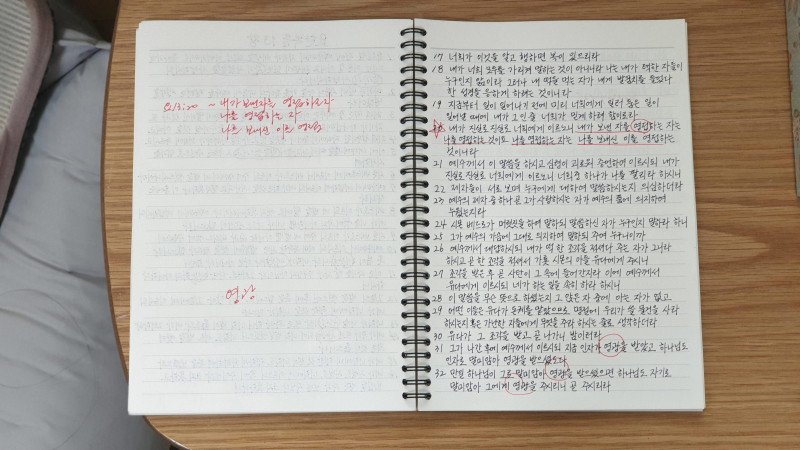 요 13:20 ~ 내가 보낸자를 영접하는자
나를 영접하는 자
나를 보내신 이를 영접
영광
17 너희가 이것을 알고 행하면 복이 있으리라
18 내가 너희 모두를 가리켜 말하는 것이 아니니라 나는 내가 택한 자들이
누구인지 앎이라 그러나 내 떡을 먹는 자가 내게 발꿈치를 들었다
한 성경을 응하게 하려는 것이니라
19 지금부터 일이 일어나기 전에 미리 너희에게 일러 둠은 일이
일어날 때에 내가 그인 줄 너희가 믿게 하려 함이로라
20 내가 진실로 진실로 너희에게 이르노니 내가 보낸 자를 영접하는 자는
나를 영접하는 것이요 나를 영접하는 자는 나를 보내신 이를 영접하는
것이니라
21 예수께서 이 말씀을 하시고 심령이 괴로워 증언하여 이르시되 내가
진실로 진실로 너희에게 이르노니 너희 중 하나가 나를 팔리라 하시니
22 제자들이 서로 보며 누구에게 대하여 말씀하시는지 의심하더라
23 예수의 제자 중 하나 곧 그가 사랑하시는 자가 예수의 품에 의지하여
누웠는지라
24 시몬 베드로가 머릿짓을 하여 말하되 말씀하신 자가 누구인지 말하라 하니
25 그가 예수의 가슴에 그대로 의지하여 말하되 주여 누구니이까
26 예수께서 대답하시되 내가 떡 한 조각을 적셔다 주는 자가 그니라
하시고 곧 한 조각을 적셔서 가룟 시몬의 아들 유다에게 주시니
27 조각을 받은 후 곧 사탄이 그 속에 들어간지라 이에 예수께서
유다에게 이르시되 네가 하는 일을 속히 하라 하시니
28 이 말씀을 무슨 뜻으로 하셨는지 그 앉은 자 중에 아는 자가 없고
29 어떤 이들은 유다가 돈궤를 맡았으므로 명절에 우리가 쓸 물건을 사라
하시는지 혹은 가난한 자들에게 무엇을 주라 하시는 줄로 생각하더라
30 유다가 그 조각을 받고 곧 나가니 밤이러라
31 그가 나간 후에 예수께서 이르시되 지금 인자가 영광을 받았고 하나님도
인자로 말미암아 영광을 받으셨도다
32 만일 하나님이 그로 말미암아 영광을 받으셨으면 하나님도 자기로
말미암아 그에게 영광을 주시리니 곧 주시리라